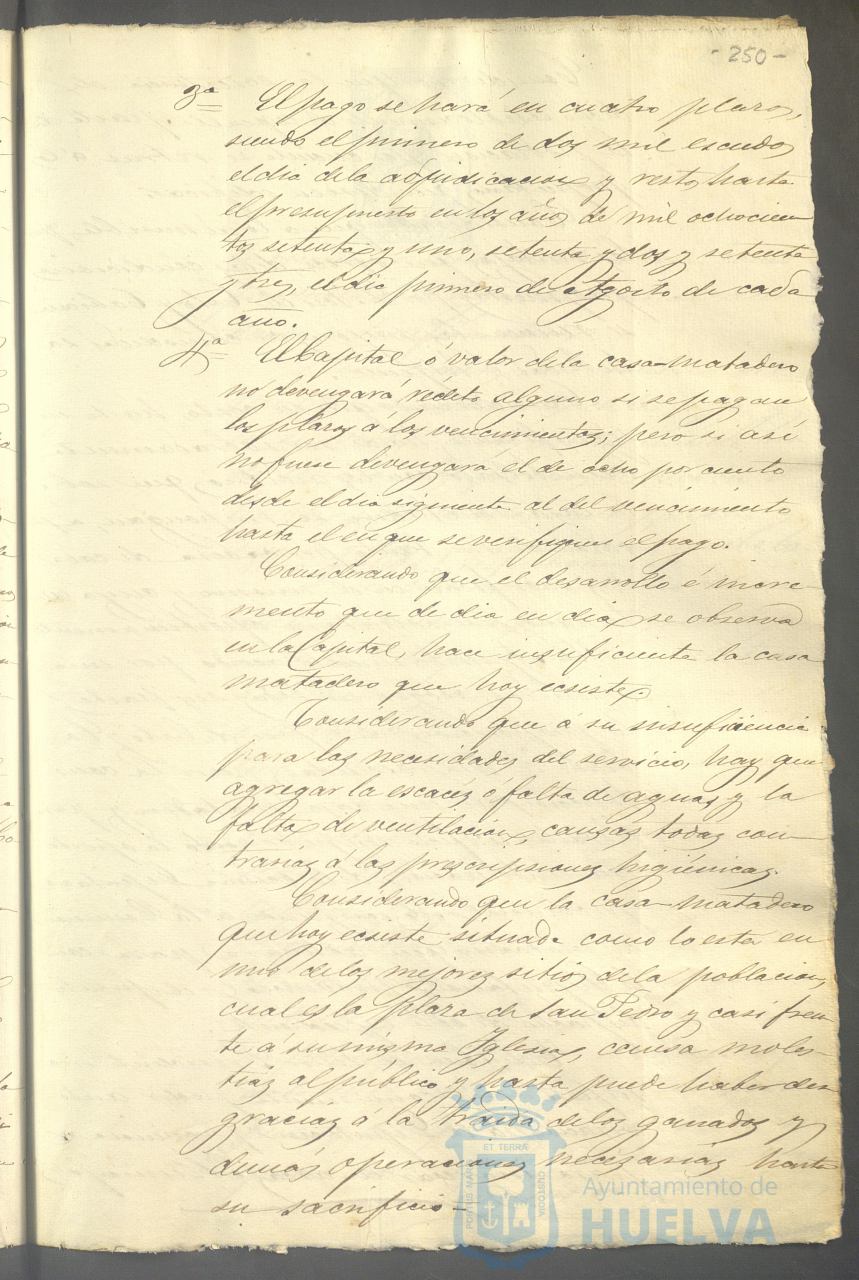 - 250 -
3ª El pago se hará en cuatro plazos,
siendo el primero de dos mil escudos
el dia de la adjudicacion y resto hasta
el presupuesto en los años de mil ochocien
tos setenta y uno, setenta y dos y setenta
y tres, el dia primero de Agosto de cada
año.
4ª El Capital ó valor de la casa-matadero
no devengará rédito alguno si se pagan
los plazos á los vencimientos; pero si así
no fuese devengará el de ocho por ciento
desde el dia siguiente al del vencimiento
hasta el en que se verifique el pago.
Considerando que el desarrollo é incre-
mento que de dia en dia se observa
en la Capital, hace insuficiente la casa
matadero que hoy ecsiste.
Considerando que á su insuficiencia
para las necesidades del servicio, hay que
agregar la escacés ó falta de aguas y la
falta de ventilacion, causas todas con-
trarias á las prescripsiones higiénicas.
Considerando que la casa-matadero
que hoy ecsiste situada como lo esta en
uno de los mejores sitios de la poblacion,
cual es la plaza de San Pedro y casi fren
te á su misma Iglesia, causa moles-
tias al público y hasta puede haber des
gracias á la traida de los ganados y
demás operaciones necesarias hasta
su sacrificio-
PORTUS MARIS
ET TERRÆ
CUSTODIA
Ayuntamiento de
HUELVA